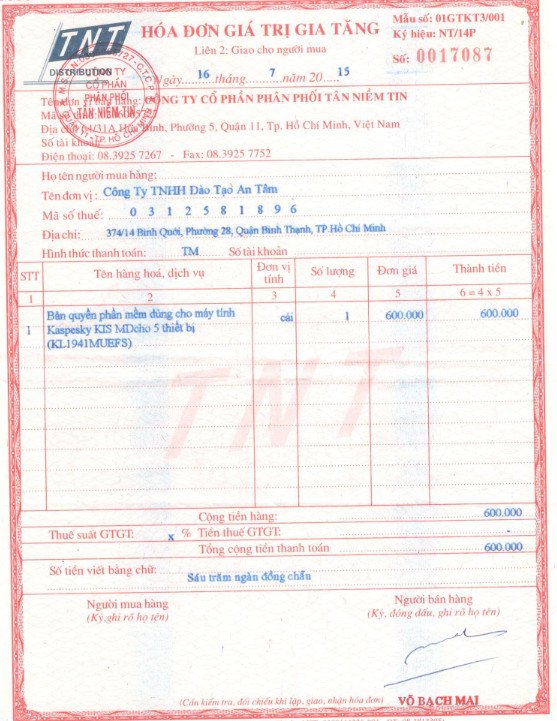 TNT
DISTRIBUTION
HÓA ĐƠN GIÁ TRỊ GIA TĂNG
Liên 2: Giao cho người mua
Mẫu số: 01GTKT3/001
Ký hiệu: NT/14P
Số: 0017087
Ngày 16 tháng 7 năm 20 15
CÔNG TY
CỔ PHẦN
PHÂN PHỐI
TÂN NIỀM TIN
Tên đơn vị bán hàng: CÔNG TY CỔ PHẦN PHÂN PHỐI TÂN NIỀM TIN
Mã số
Địa chỉ: 61/31A Bình, Phường 5, Quận 11, Tp. Hồ Chí Minh, Việt Nam
Số tài khoản
Điện thoại: 08.3925 7267 - Fax: 08.3925 7752
Họ tên người mua hàng:
Tên đơn vị: Công Ty TNHH Đào Tạo An Tâm
Mã số thuế: 0 3 1 2 5 8 1 8 9 6
Địa chỉ: 374/14 Bình Quới, Phường 28, Quận Bình Thạnh, TP Hồ Chí Minh
Hình thức thanh toán: TM Số tài khoản
STT Tên hàng hoá, dịch vụ Đơn vị tính Số lượng Đơn giá Thành tiền
1 2 3 4 5 6 = 4 x 5
1 Bản quyền phần mềm dùng cho máy tính Kaspesky KIS MDcho 5 thiết bị (KL1941MUEFS) cái 1 600.000 600.000
TNT
Cộng tiền hàng: 600.000
Thuế suất GTGT: x % Tiền thuế GTGT: -
Tổng cộng tiền thanh toán 600.000
Số tiền viết bằng chữ: Sáu trăm ngàn đồng chẵn
Người mua hàng Người bán hàng
(Ký,ghi rõ họ tên) (Ký, đóng dấu, ghi rõ họ tên)
(Cần kiểm tra, đối chiếu khi lập, giao, nhận hóa đơn) VÕ BẠCH MAI